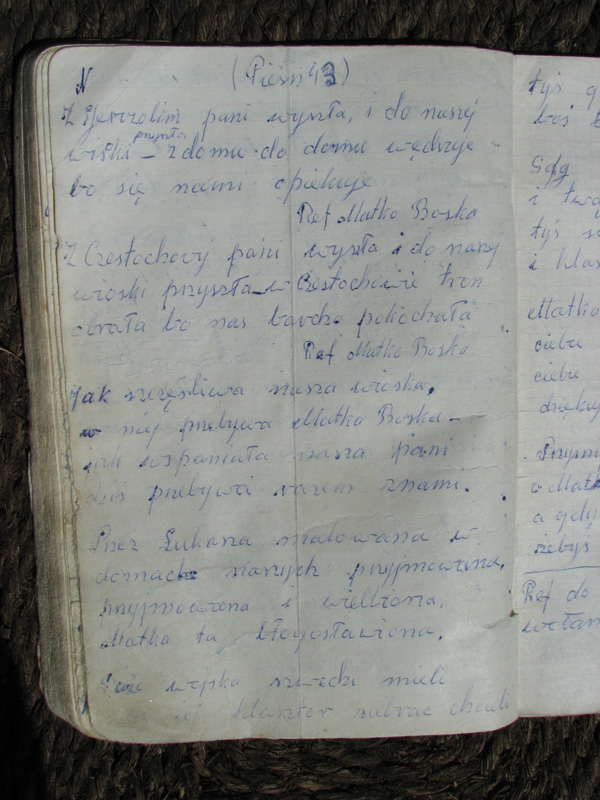 N
(Pieśń 43)
Z Jerozolim pani wyszła, i do naszej
przyszła
wiski – z domu do domu wędruje –
bo się nami opiekuje
Ref Matko Boska
Z Czestochowy pani wyszła i do naszej
wioski przyszła – w Czestochowie tron
obrała bo nas bardzo pokochała
Ref Matko Boska
Jak szczęśliwa nasza wioska,
w niej przebywa Matka Boska –
jak wspaniała nasza pani
dziś przebywa razem znami.
Przez Łukasza malowana w
domach naszych przyjmowana,
przyjmowana i wielbiona,
Matka ta błogosławiona.
wojska szwecki mieli
jej klasztor zabrac chcieli
tyś
boś
Gdy
i
tyś
i
Matko
ciebie
ciebie
dziękuj
Przyjmi
o Matk
a gdy
żebyś
Ref do